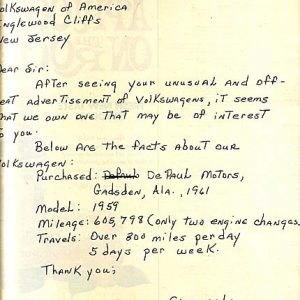 Volkswagen of America
Englewood Cliffs
New Jersey
Dear Sir:
After seeing your unusual and off-
eat advertisement of Volkswagens, it seems
that we own one that may be of interest
to you.
Below are the facts about our
Volkswagen:
Purchased: DePaul DePaul Motors,
Gadsden, Ala., 1961
Model: 1959
Mileage: 605,798 (only two engine changes
Travels: Over 800 miles per day
5 days per week.
Thank you;